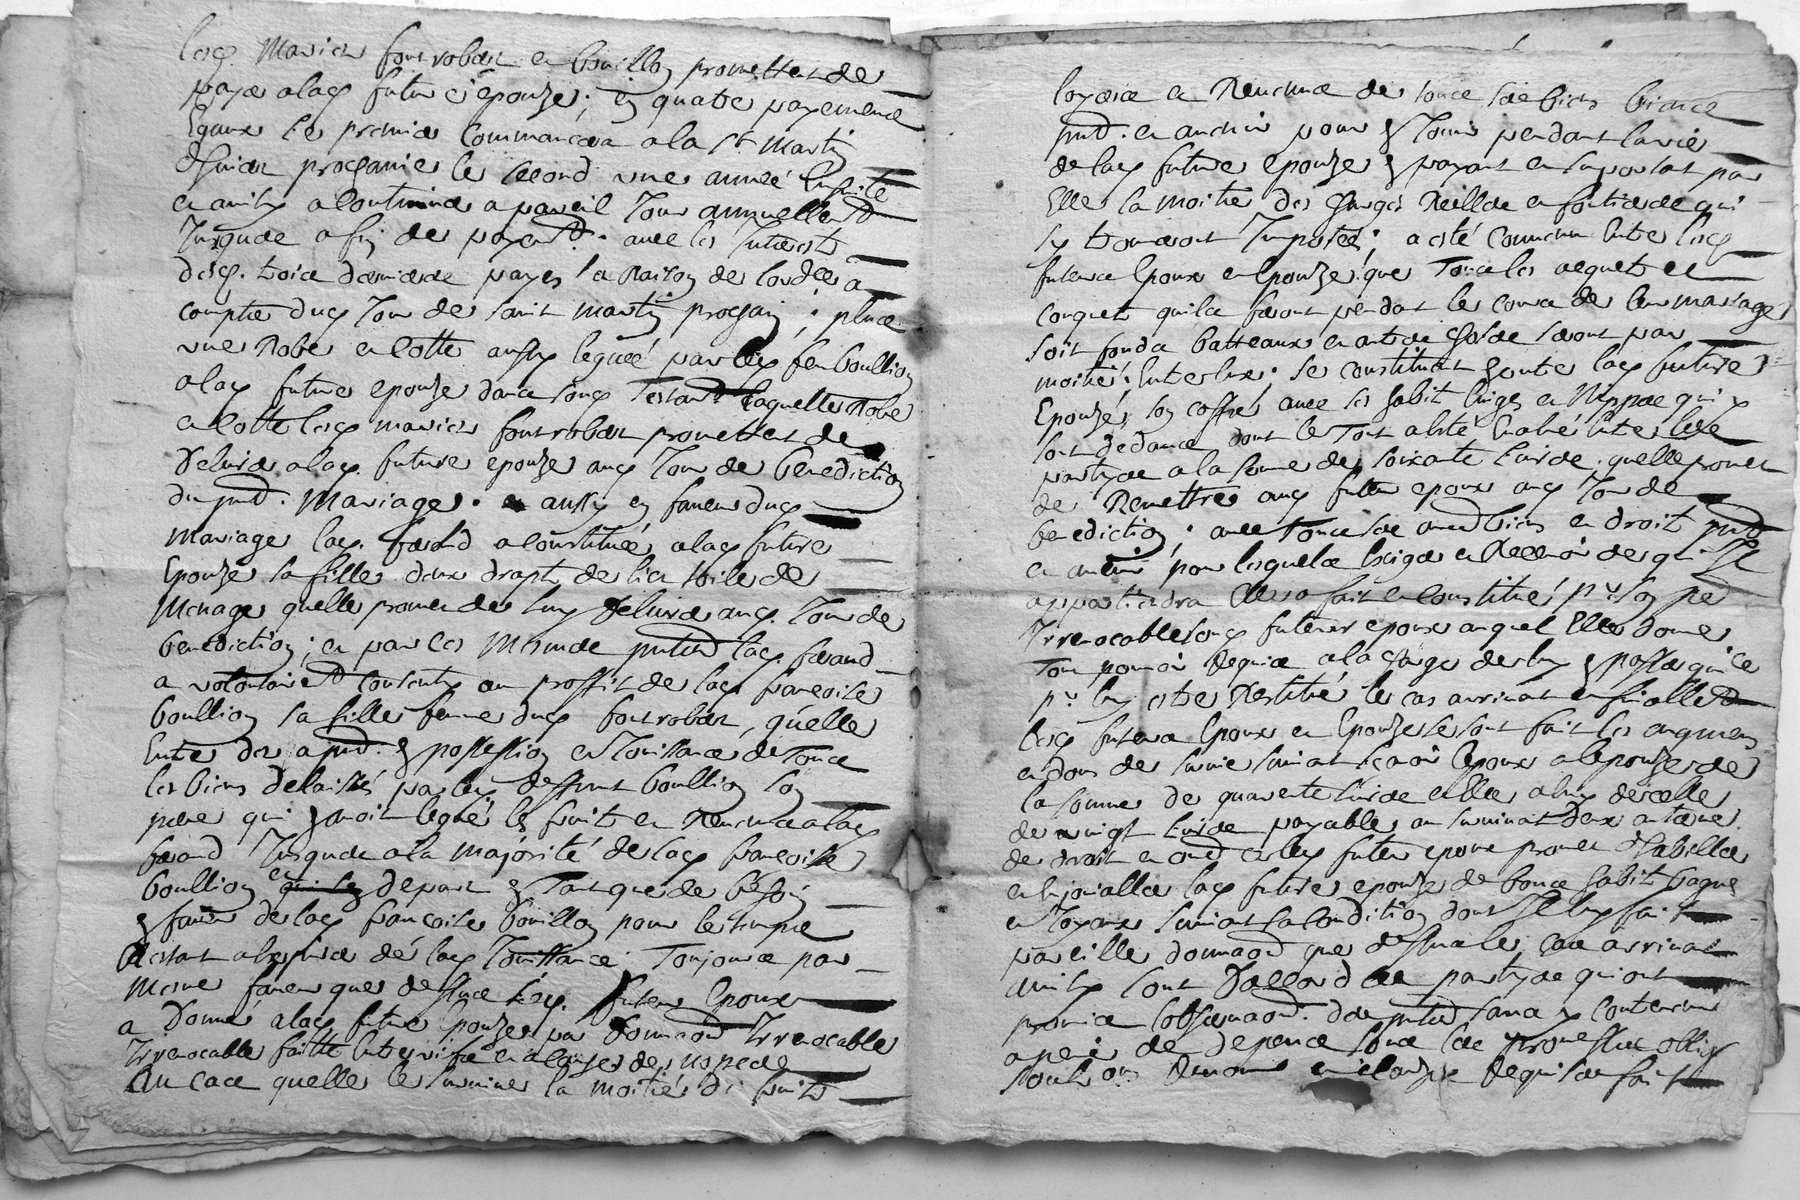 lesq. mariés fontrobert et boullion promettent de
payer a lad future epouze; en quatre payement
Egaux le premier commancera a la st martin
d'hiver prochaine le second une année ensuite
et ainsy a continuer a pareil jour annuellemt
jusques a fin de payemt. avec les interests
desq. trois derniers payes a raison de l'ordce a
compter dud jour de saint martin prochain; plus
une robe et cotte aussy leguée par led feu boullion
a lad future epouze dans son testamt laquelle robe
et cotte lesq mariés fontrobert promettent de
delivrer a lad. future epouze aud jour de benediction
du pnt. mariage. aussy en faveur dud
mariage lad. ferand a constitué a lad future
Epouze sa fille deux drapt de lict toile de
menage quelle promet de luy delivrer aud. jour de
benediction; et par les mesmes pntes lad. ferand
a volontairemt consenty au proffit de lad francoise
boullion sa fille femme dud fontrobert, quelle
entre des a pnt. en possession et jouissance de tous
les biens delaissés par led deffunt boullion son
pere qui avoit legué les fruit et revenus a lad
ferand jusques a la majorité de lad francoise
boullion et depart en tant que de besoin
en faveur de lad francoise boullion pour le temps
restant a expirer de lad jouissance. Toujours par
mesme faveur que dessus led. futeur Epoux
a donné a lad future Epouze par donnaon irrevocable
irrevocable faitte entre vifs et a cause de nopces
au cas quelle le survive la moitié des fruits
loyers et revenus de tous ses biens
pnt. et avenir pour en jouir pendant la vie
de lad future epouze en payant et suportant par
Elle la moitié des charges reelles et fonciere qui
sy trouveront imposées; a esté convenu entre lesq
futeurs Epoux et Epouze que tous les aquets et
conquet quils feront pendant le cours de leur mariage
soit fonds batteaux et autre chose seront par
moitié entre eux; se constituant en outre lad future
Epouze, son coffre avec ses habit linges et nippes qui
sont dedans dont le tout a esté evalué entre les
partyes a la somme de soixante livres. quelle promet
de remettre aud futeur epoux aud jour de
benediction; avec tous ses autres biens et droit pnt
et avenir pour lesquels exiger et recevoir de qui Il
appartiendra elle a fait et constitué pr. son pr
irrevocable led futeur epoux auquel Elle donne
tout pouvoir requis a la charge de luy en passer quitce
pr. luy estre restitué le cas arrivant et finallemt
lesq futeurs Epoux et Epouze se sont fait les augment
et dons de survie suivant scavoir lepoux a lepouze de
la somme de quarente livres et elle a luy dicelle
de vingt livres payable au survivant deux a terme
de droit et outre led futeur epoux promet d'habiller
et enjouialler lad future epouze de bons habit bagues
et joyaux suivant sa condition dont Il luy fait
pareille donnaon que dessus le cas arrivant
ainsy sont d'accord les partyes qui ont
promis l'observaon. des pntes sans y contrevenir
a peine de depence sous les promesses oblig
soubmis. renonc. et clauze requises fait